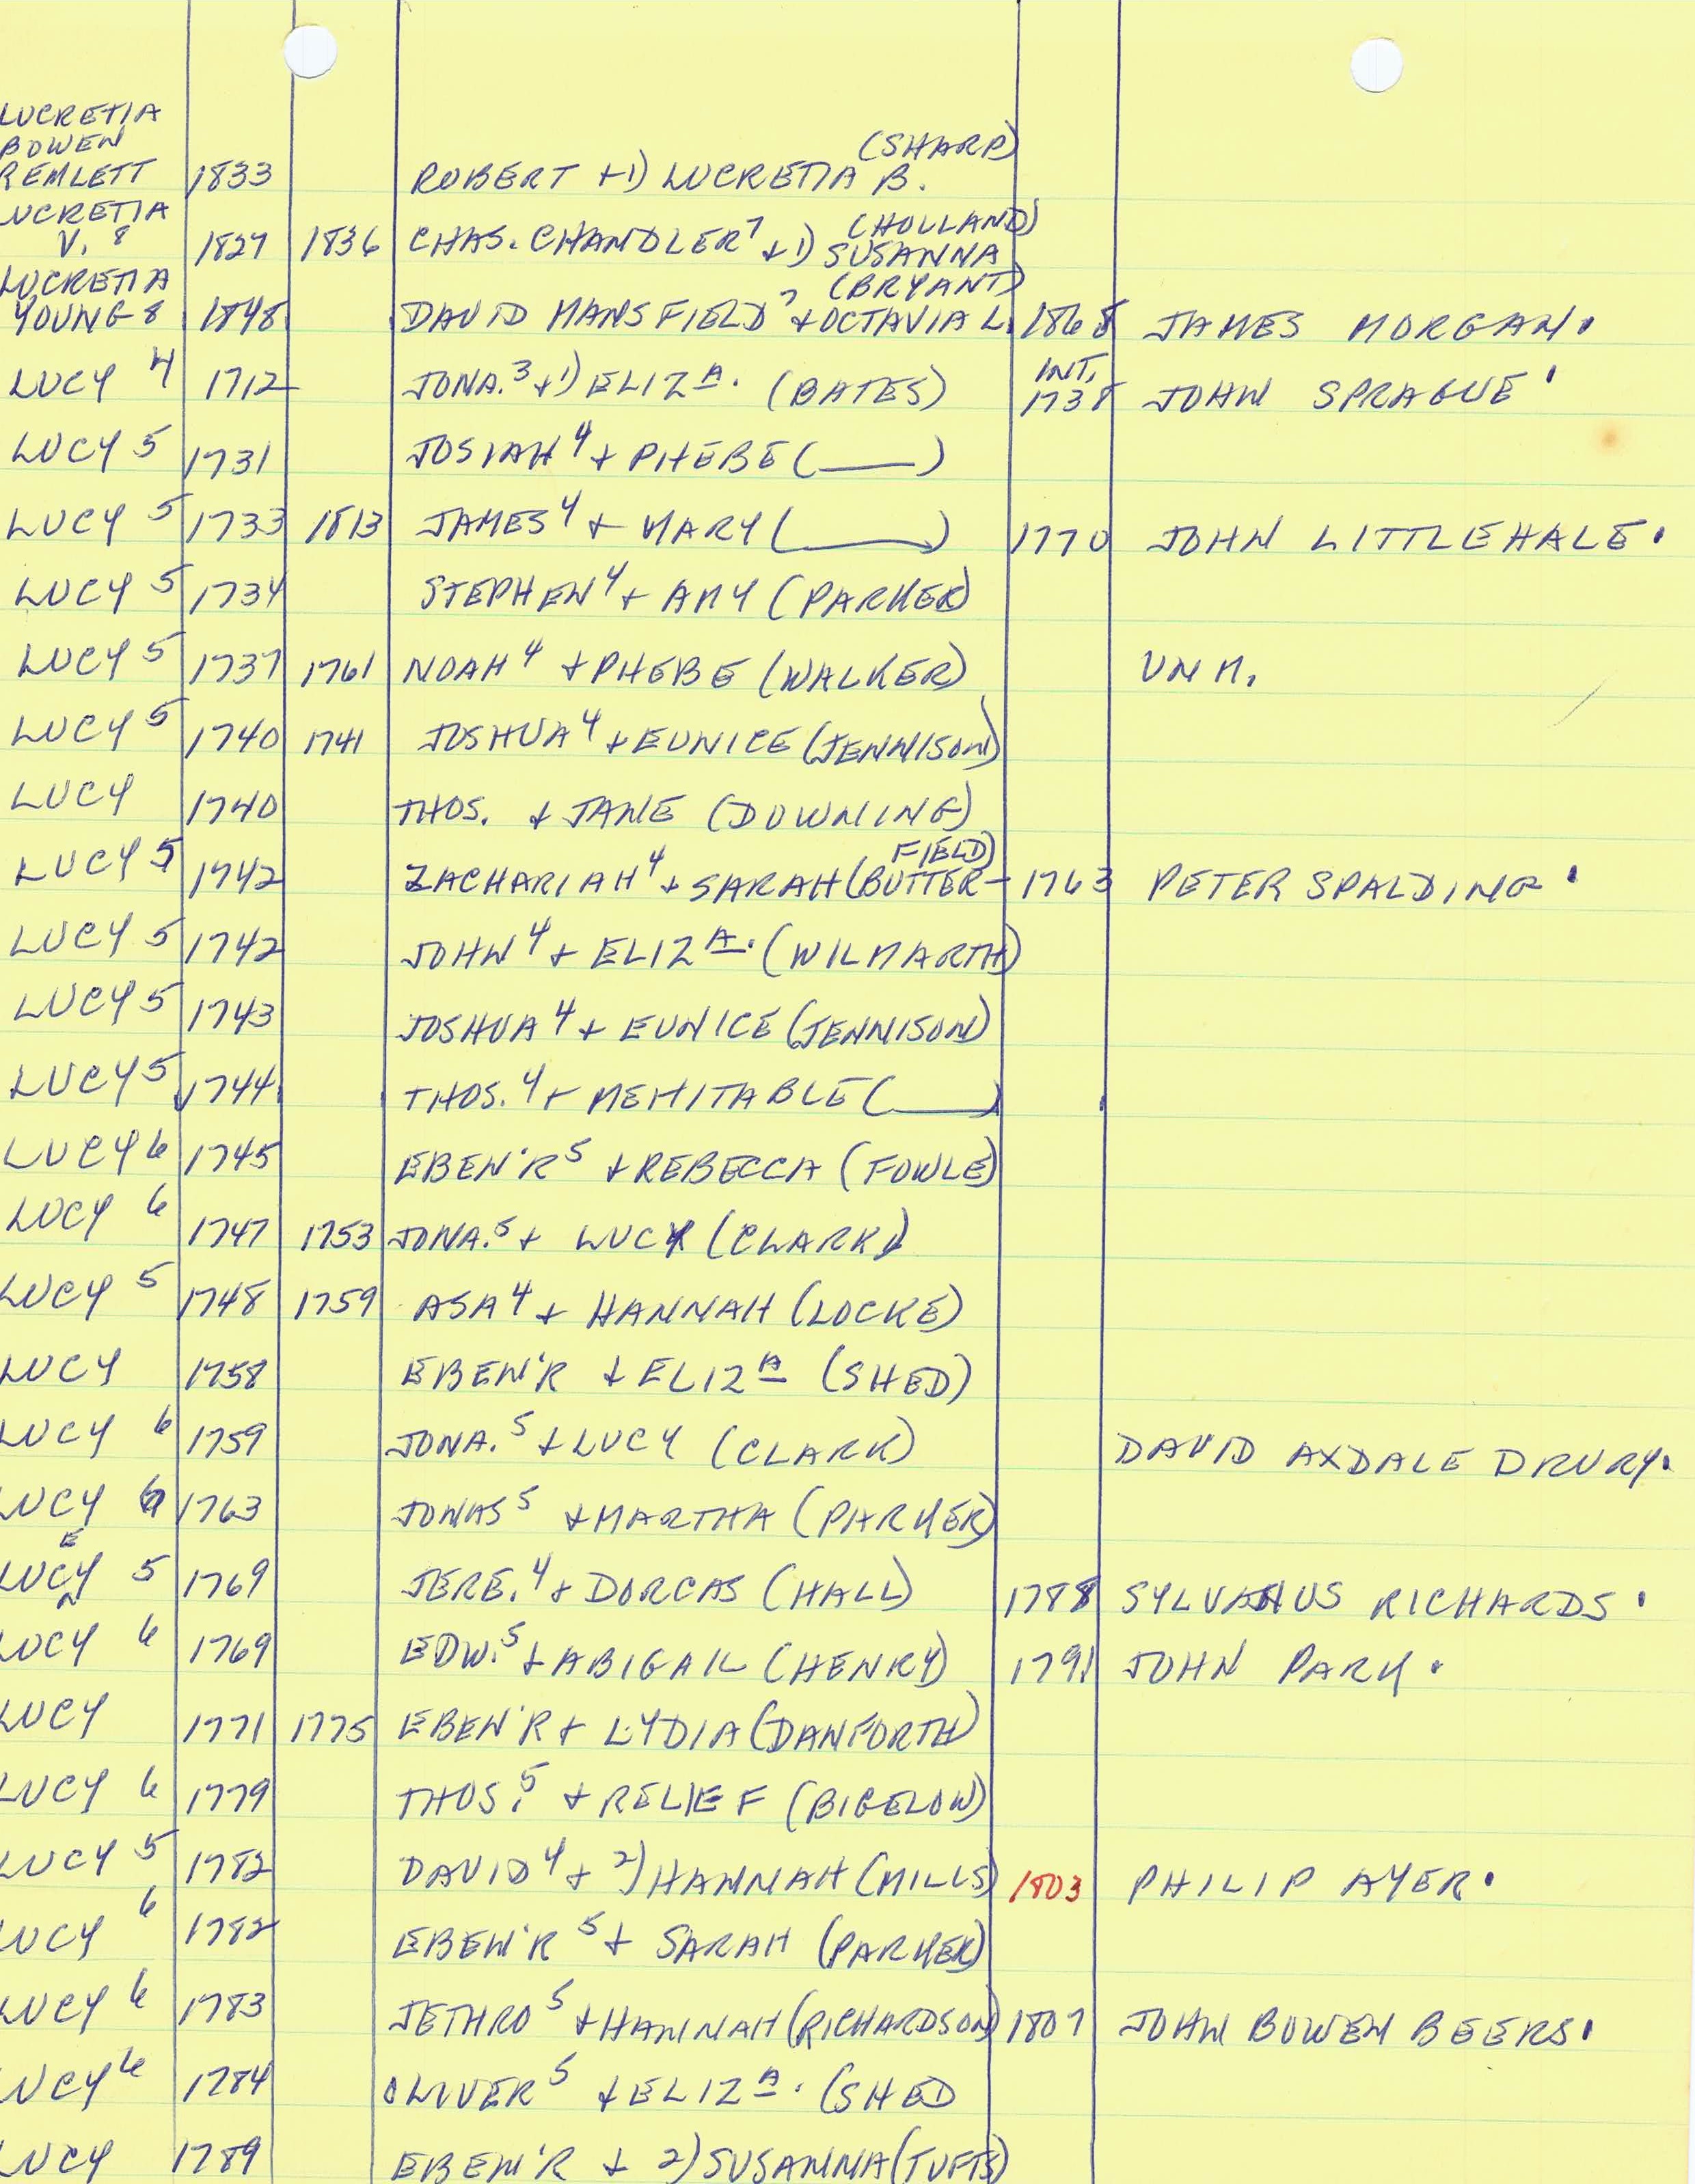 LUCRETIA
BOWEN (SHARP)
REMLETT 1833 ROBERT + 1) LUCRETIA B.
UCRETIA (HOLLAND)
V. 8 1827 1836 CHAS. CHANDLER 7 + 1) SUSANNA
LUCRETIA (BRYANT)
YOUNG 8 1848 DAVID MANSFIELD 7 + OCTAVIA L. 1868 JAMES MORGAN.
INT.
LUCY 4 1712 JONA. 3 + 1) ELIZA. (BATES) 1738 JOHN SPRAGUE
LUCY 5 1731 JOSIAH 4 + PHEBE (___)
LUCY 5 1733 1813 JAMES 4 + MARY (___) 1770 JOHN LITTLEHALE.
LUCY 5 1734 STEPHEN 4 + AMY (PARKER)
LUCY 5 1737 1761 NOAH 4 + PHEBE (WALKER) UNM.
LUCY 5 1740 1741 JOSHUA 4 + EUNICE (JENNISON)
LUCY 1740 THOS. + JANE (DOWNING)
FIELD)
LUCY 5 1742 ZACHARIAH 4 + SARAH (BUTTER- 1763 PETER SPALDING.
LUCY 5 1742 JOHN 4 + ELIZA. (WILMARTH)
LUCY 5 1743 JOSHUA 4 + EUNICE (JENNISON)
LUCY 5 1744 THOS. 4 + MEHITABLE (___)
LUCY 6 1745 EBEN'R 5 + REBECCA (FOWLE)
LUCY 6 1747 1753 JONA. 5 + LUCY (CLARK)
LUCY 5 1748 1759 ASA 4 + HANNAH (LOCKE)
LUCY 1758 EBEN'R + ELIZA (SHED)
LUCY 6 1759 JONA. 5 + LUCY (CLARK) DAVID AXDALE DRURY.
LUCY 6 1763 JONAS 5 + MARTHA (PARKER)
E
LUCY 5 1769 JERE. 4 + DORCAS (HALL) 1788 SYLVANUS RICHARDS.
UCY 6 1769 EDW. 5 + ABIGAIL (HENRY) 1791 JOHN PARK.
LUCY 1771 1775 EBEN'R + LYDIA (DANFORTH)
LUCY 6 1779 THOS. 5 + RELIEF (BIGELOW)
LUCY 5 1782 DAVID 4 + 2) HANNAH (MILLS) 1803 PHILIP AYER.
UCY 6 1782 EBEN'R 5 + SARAH (PARKER)
UCY 6 1783 JETHRO 5 + HANNAH (RICHARDSON) 1807 JOHN BOWEN BEERS.
UCY 6 1784 OLIVER 5 + ELIZA. (SHED
UCY 1789 EBEN'R + 2) SUSANNA (TUFTS)